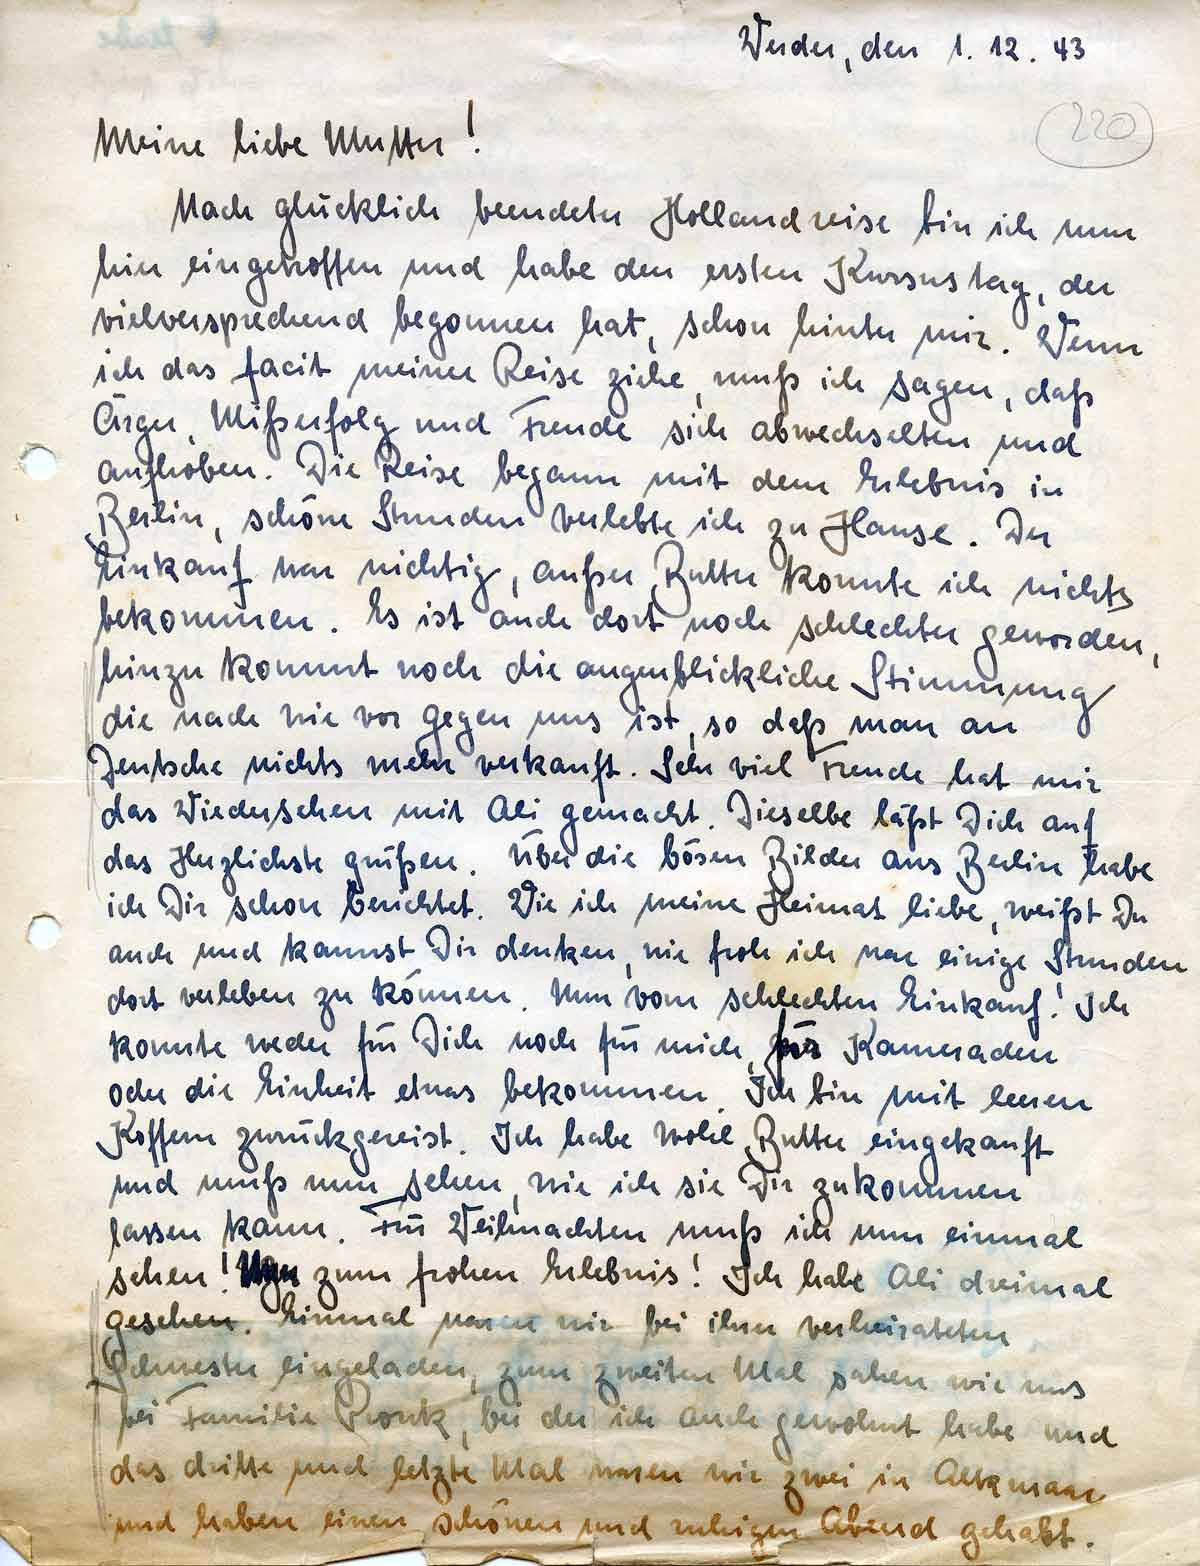 Werder, den 1. 12. 43
220
Meine liebe Mutter!
Nach glücklich beendeter Hollandreise bin ich nun
hier eingetroffen und habe den ersten Kursustag, der
vielversprechend begonnen hat, schon hinter mir. Wenn
ich das facit meiner Reise ziehe, muß ich sagen, daß
Ärger, Mißerfolg und Freude sich abwechselten und
aufhoben. Die Reise begann mit dem Erlebnis in
Berlin, schöne Stunden verlebte ich zu Hause. Der
Einkauf war nichtig, außer Butter konnte ich nichts
bekommen. Es ist auch dort noch schlechter geworden,
hinzu kommt noch die augenblickliche Stimmung
die nach wie vor gegen uns ist, so daß man an
Deutsche nichts mehr verkauft. Sehr viel Freude hat mir
das Wiedersehen mit Ali gemacht. Dieselbe läßt Dich auf
das Herzlichste grüßen. Über die bösen Bilder aus Berlin habe
ich Dir schon berichtet. Wie ich meine Heimat liebe, weißt Du
auch und kannst Dir denken, wie froh ich war einige Stunden
dort verleben zu können. Nun vom schlechten Einkauf! Ich
konnte weder für Dich noch für mich, für Kameraden
oder die Einheit etwas bekommen. Ich bin mit leeren
Koffern zurückgereist. Ich habe wohl Butter eingekauft
und muß nun sehen, wie ich sie Dir zukommen
lassen kann. Für Weihnachten muß ich nun einmal
sehen! Nun zum frohen Erlebnis! Ich habe Ali dreimal
gesehen. Einmal waren wir bei ihrer verheirateten
Schwester eingeladen, zum zweiten Mal sahen wir uns
bei Familie Pronk, bei der ich auch gewohnt habe und
das dritte und letzte Mal waren wir zwei in Alkmaar
und haben einen schönen und ruhigen Abend gehabt.